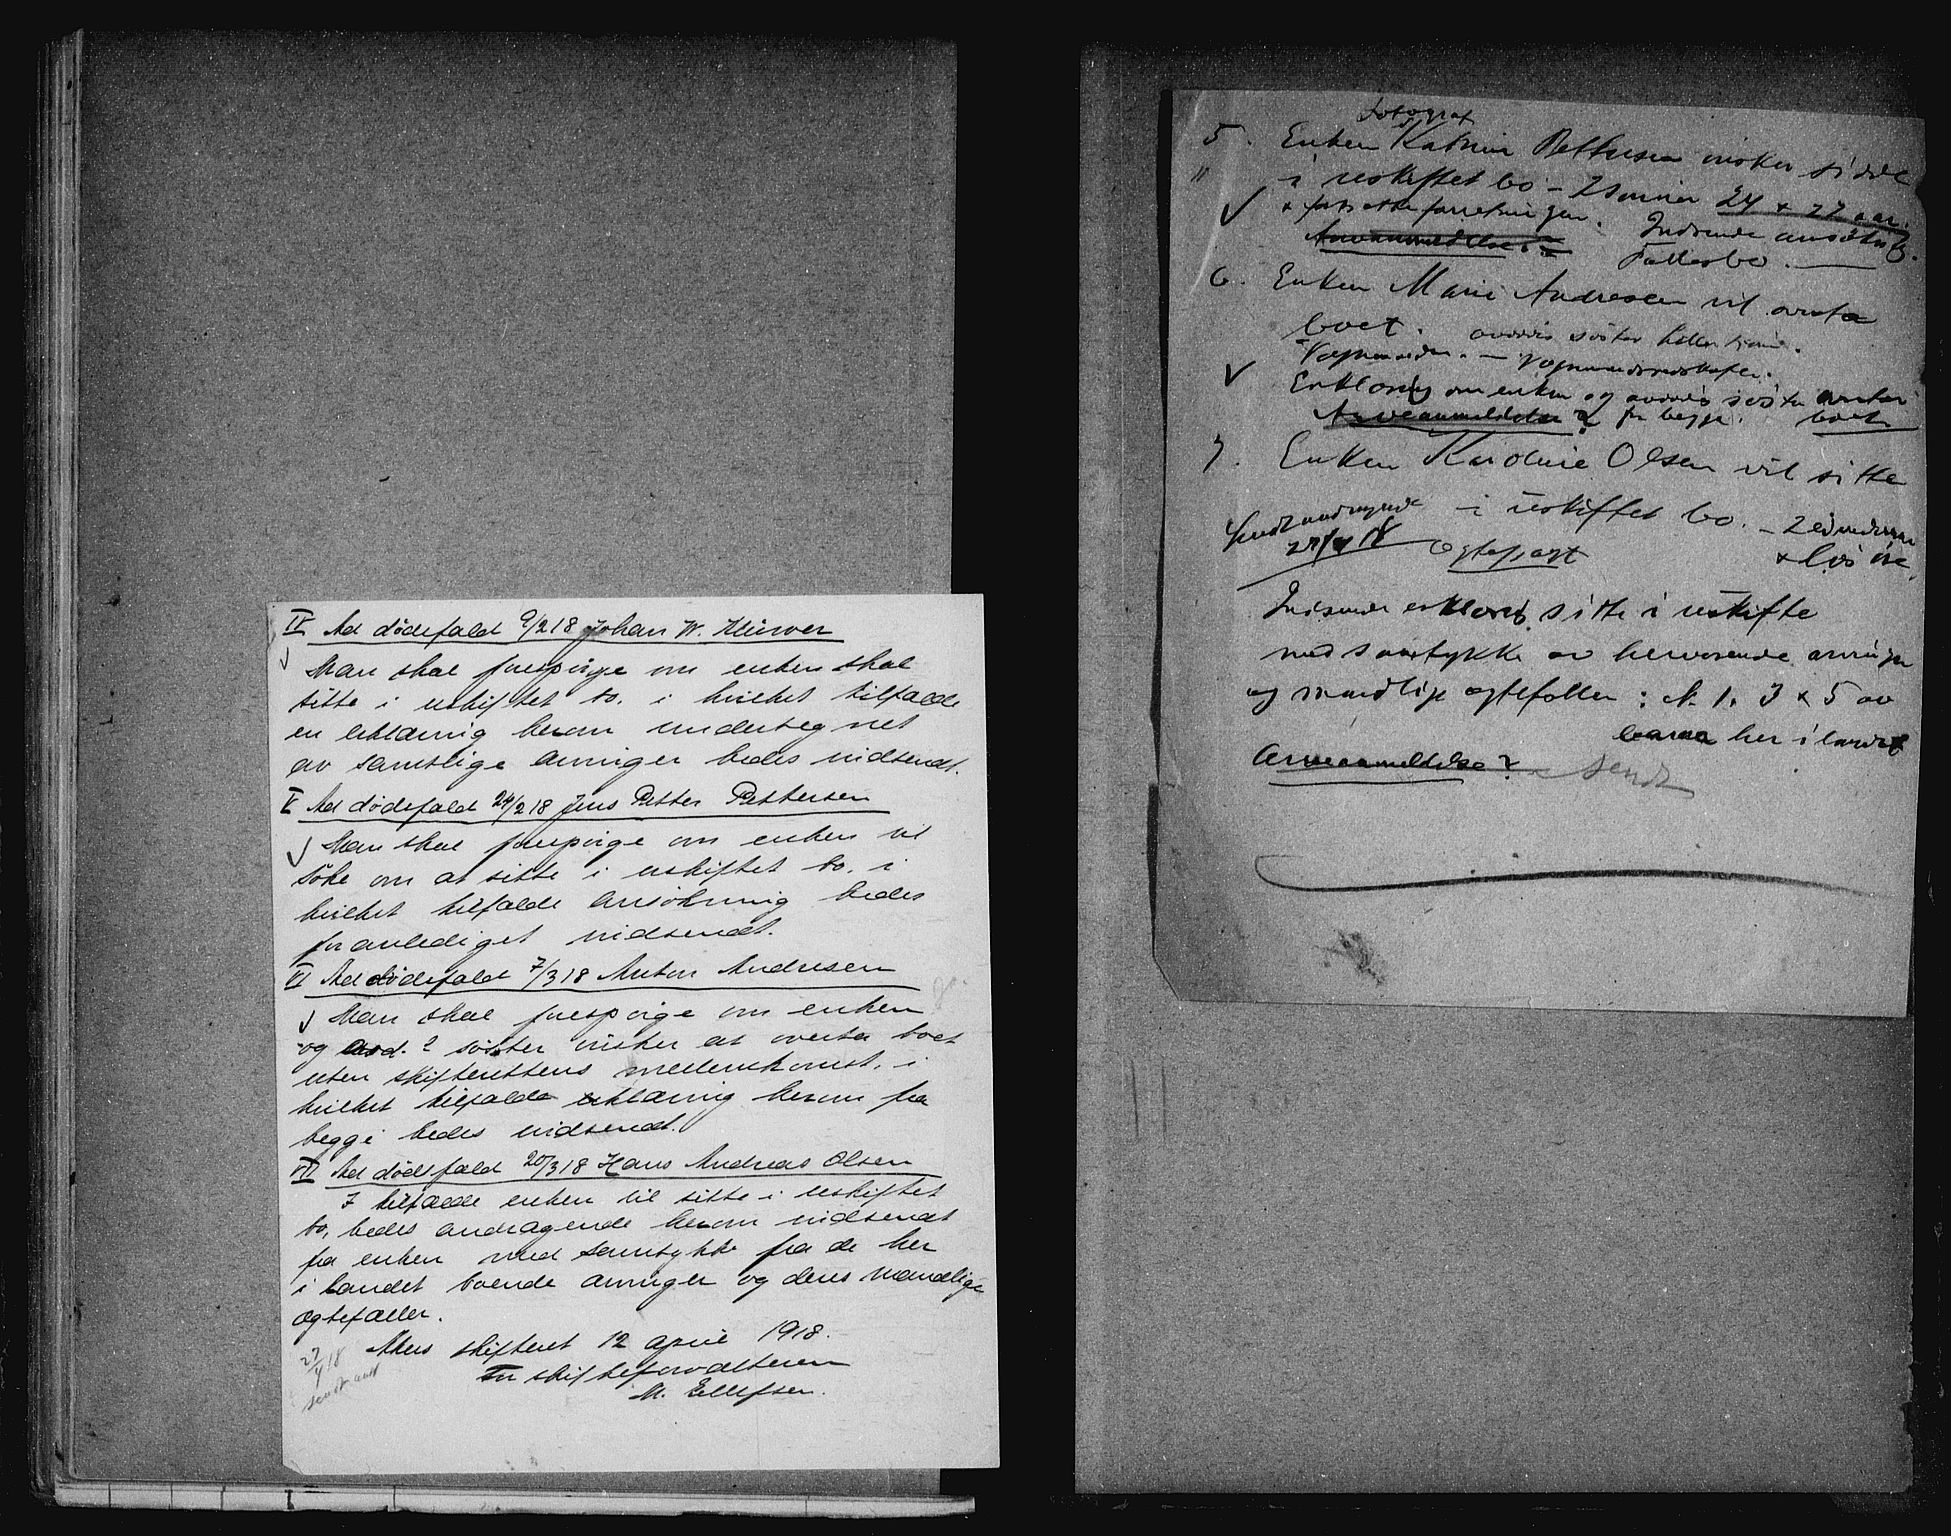 IV Ad dødsfald 9/2 18 Johan W. Klüwer
Man skal forespörge om enken skal
sitte i uskiftet bo, i hvilket tilfælde
en erklæring herom undertegnet
av samtlige arvinger bedes indsendt.
V Ad dödsfald 24/2 18 Jens Petter Pettersen
Man skal forespörge om enken vil
söke om at sitte i uskiftet bo, i
hvilket tilfælde ansökning bedes
foranlediget indsendt.
VI Ad dödsfald 7/3 18 Anton Andresen
Man skal forespörge om enken
og avd.s söster önsker at overta boet
uten skifterettens mellemkomst, i
hvilket tilfælde erklæring herom fra
begge bedes indsendt.
VII Ad dödsfald 20/3 18 Hans Andreas Olsen
I tilfælde enken vil sitte i uskiftet
bo, bedes andragende herom indsendt
fra enken med samtykke fra de her
i landet boende arvinger og deres mandlige
ægtefæller.
Akers skifteret 12 april 1918.
For skifteforvalteren
M. Ellefsen.
27/4 18
sendt
Fotograf
5. Enken Katrine Pettersen önsker sidde
i uskiftet bo - 2 sönner 24 + 22 aar.
+ fortsætte forretningen. Indsende ansökning.
Arveanmeldelse? Fællesbo.
6. Enken Marie Andresen vil overta
boet. avdödes söster
Erklæring om enken og avdödes söster overtar
Arveanmeldelse? fra begge. boet
7. Enken Karoline Olsen vil sitte
i uskiftet bo. - 2 eiendommer
+ lösöre.
Sendt andragende
27/4 18
Indsende erklæring sitte i uskifte
med samtykke av herværende arvinger
og mandlige ægtefæller: N. 1, 3 & 5 av
barna her i landet
Arveanmeldelse? Sendt